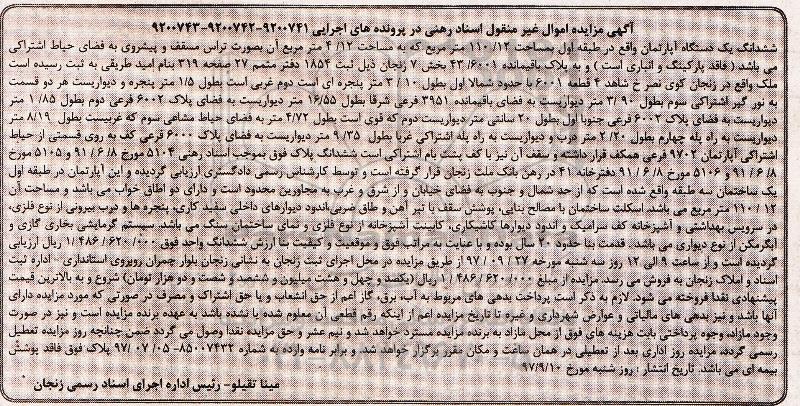 آگهی مزایده اموال غیر منقول اسناد رهنی در پرونده های اجرایی ۹۲۰۰۷۴۱-۹۲۰۰۷۴۲-۹۲۰۰۷۴۳
ششدانگ یک دستگاه آپارتمان واقع در طبقه اول بمساحت ۱۱۰/۱۲ متر مربع که به مساحت ۴/۱۲ متر مربع آن بصورت تراس مسقف و پیشروی به فضای حیاط اشتراکی
می باشد (فاقد پارکینگ و انباری است) و به پلاک باقیمانده ۴۳/۶۰۰۱ بخش ۷ زنجان ذیل ثبت ۱۸۵۴ دفتر متمم ۲۷ صفحه ۳۱۹ بنام امید طریقی به ثبت رسیده است
ملک واقع در زنجان کوی نصر خ شاهد ۴ قطعه ۶۰۰۱ با حدود شمالا اول بطول ۳/۱۰ متر پنجره ای است دوم غربی است بطول ۱/۵ متر پنجره و دیواریست هر دو قسمت
به نور گیر اشتراکی سوم بطول ۳/۹۰ متر دیواریست به فضای باقیمانده ۳۹۵۱ فرعی شرقا بطول ۱۶/۵۵ متر دیواریست به فضای پلاک ۶۰۰۲ فرعی دوم بطول ۱/۸۵ متر
دیواریست به فضای پلاک ۶۰۰۲ فرعی جنوبا اول بطول ۲۰ سانتی متر دیواریست دوم که قوی است بطول ۴/۷۲ متر به فضای حیاط مشاعی سوم که غربیست بطول ۸/۱۹ متر
دیواریست به راه پله چهارم بطول ۲/۲۰ متر درب و دیواریست به راه پله اشتراکی غربا بطول ۹/۳۵ متر دیواریست به فضای پلاک ۶۰۰۰ فرعی کف به روی قسمتی از حیاط
اشتراکی آپارتمان ۹۷۰۲ فرعی همکف قرار داشته و سقف آن نیز با کف پشت بام اشتراکی است ششدانگ پلاک فوق بموجب اسناد رهنی ۵۱۰۴ مورخ ۹۱/۶/۸ و ۵۱۰۵ مورخ
۹۱/۶/۸ و ۵۱۰۶ مورخ ۹۱/۶/۸ دفترخانه ۴۱ در رهن بانک ملت زنجان قرار گرفته است و توسط کارشناس رسمی دادگستری ارزیابی گردیده و این آپارتمان در طبقه اول
یک ساختمان سه طبقه واقع شده است که از حد شمال و جنوب به فضای خیابان و از شرق و غرب به مجاورین محدود است و دارای دو اطاق خواب می باشد و مساحت آن
۱۱۰/۱۲ متر مربع می باشد. اسکلت ساختمان با مصالح بنایی، پوشش سقف با تیر آهن و طاق ضربی، اندود دیوارهای داخلی سفید کاری، پنجره ها و درب بیرونی از نوع فلزی،
در سرویس بهداشتی و آشپزخانه کف سرامیک و اندود دیوارها کاشیکاری، کابینت آشپزخانه از نوع فلزی و نمای ساختمان سنگ می باشد. سیستم گرمایشی بخاری گازی و
آبگرمکن از نوع دیواری می باشد. قدمت بنا حدود ۲۰ سال بوده و با عنایت به مراتب فوق و موقعیت و کیفیت بنا ارزش ششدانگ واحد فوق ۱/۴۸۶/۶۲۰/۰۰۰ ریال ارزیابی
گردیده است و از ساعت ۹ الی ۱۲ روز سه شنبه مورخه ۹۷/۰۹/۲۷ از طریق مزایده در محل اجرای ثبت زنجان به نشانی زنجان بلوار چمران روبروی استانداری - اداره ثبت
اسناد و املاک زنجان به فروش می رسد. مزایده از مبلغ ۱/۴۸۶/۶۲۰/۰۰۰ ریال (یکصد و چهل و هشت میلیون و ششصد و شصت و دو هزار تومان) شروع و به بالاترین قیمت
پیشنهادی نقدا فروخته می شود. لازم به ذکر است پرداخت بدهی های مربوط به آب، برق، گاز اعم از حق انشعاب و یا حق اشتراک و مصرف در صورتی که مورد مزایده دارای
آنها باشد و نیز بدهی های مالیاتی و عوارض شهرداری و غیره تا تاریخ مزایده اعم از اینکه رقم قطعی آن معلوم شده یا نشده باشد به عهده برنده مزایده است و نیز در صورت
وجود مازاد، وجوه پرداختی بابت هزینه های فوق از محل مازاد به برنده مزایده مسترد خواهد شد و نیم عشر و حق مزایده نقدا وصول می گردد ضمن چنانچه روز مزایده تعطیل
رسمی گردد، مزایده روز اداری بعد از تعطیلی در همان ساعت و مکان مقرر برگزار خواهد شد. و برابر نامه وارده به شماره ۸۵۰۰۷۴۳۲- ۹۷/۰۷/۰۵ پلاک فوق فاقد پوشش
بیمه ای می باشد. تاریخ انتشار: روز شنبه مورخ ۹۷/۹/۱۰
مینا تقیلو- رئیس اداره اجرای اسناد رسمی زنجان